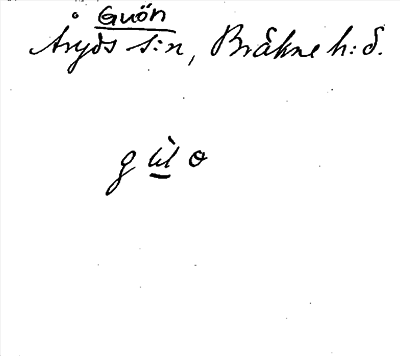 Guön
Åryds s:n, Bräkne h:d.